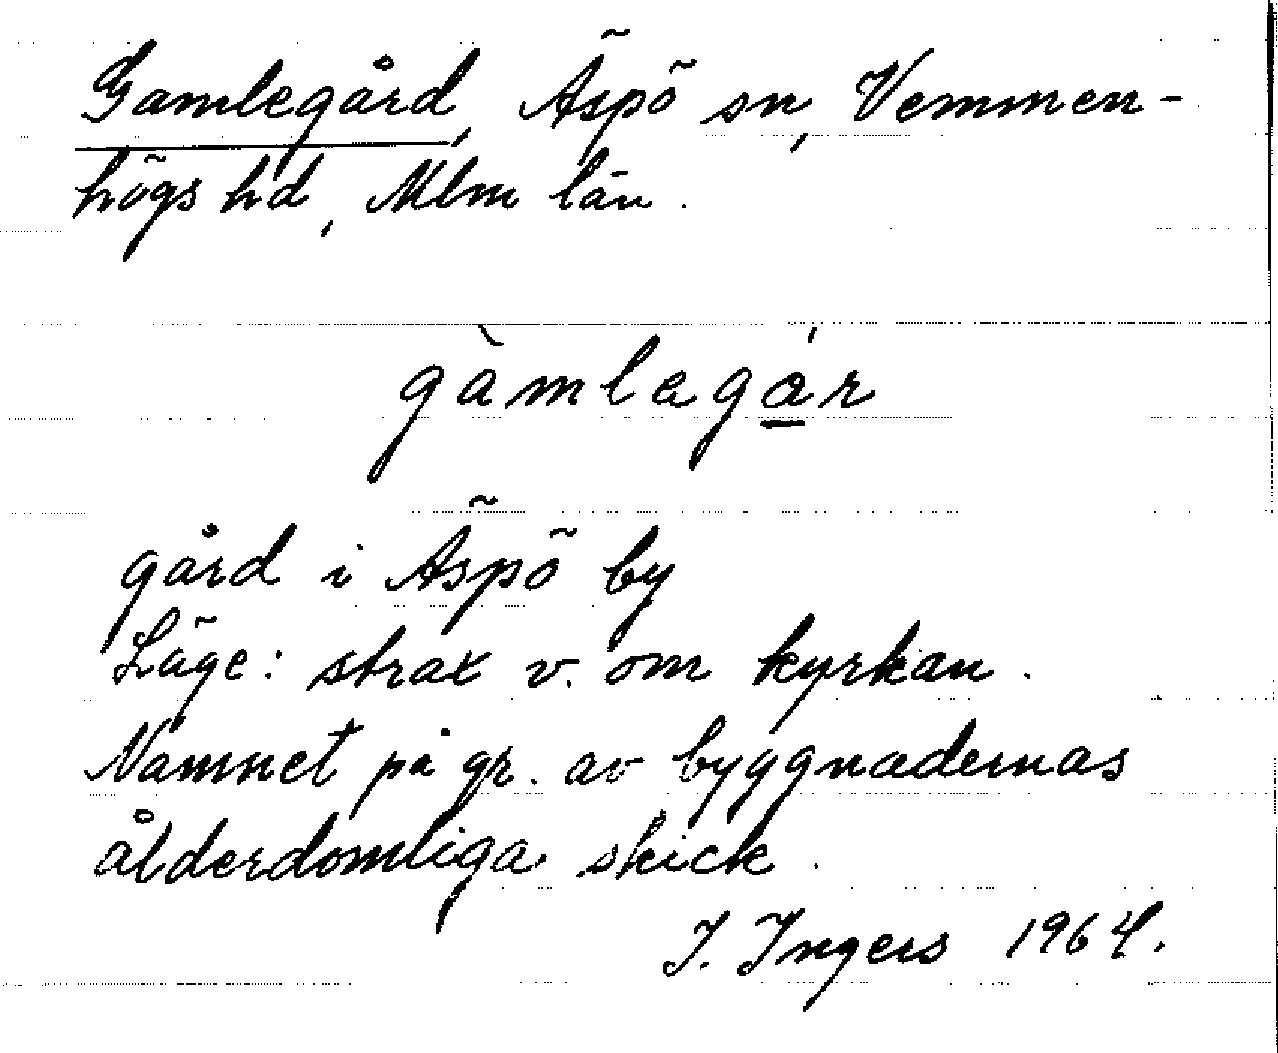 Gamlegård, Äspö sn, Vemmen-
högs hd, Mlm län.
gàmlagá̱r
gård i Äspö by
Läge: strax v. om kyrkan.
Namnet på gr. av byggnadernas
ålderdomliga skick.
I. Ingers 1964.